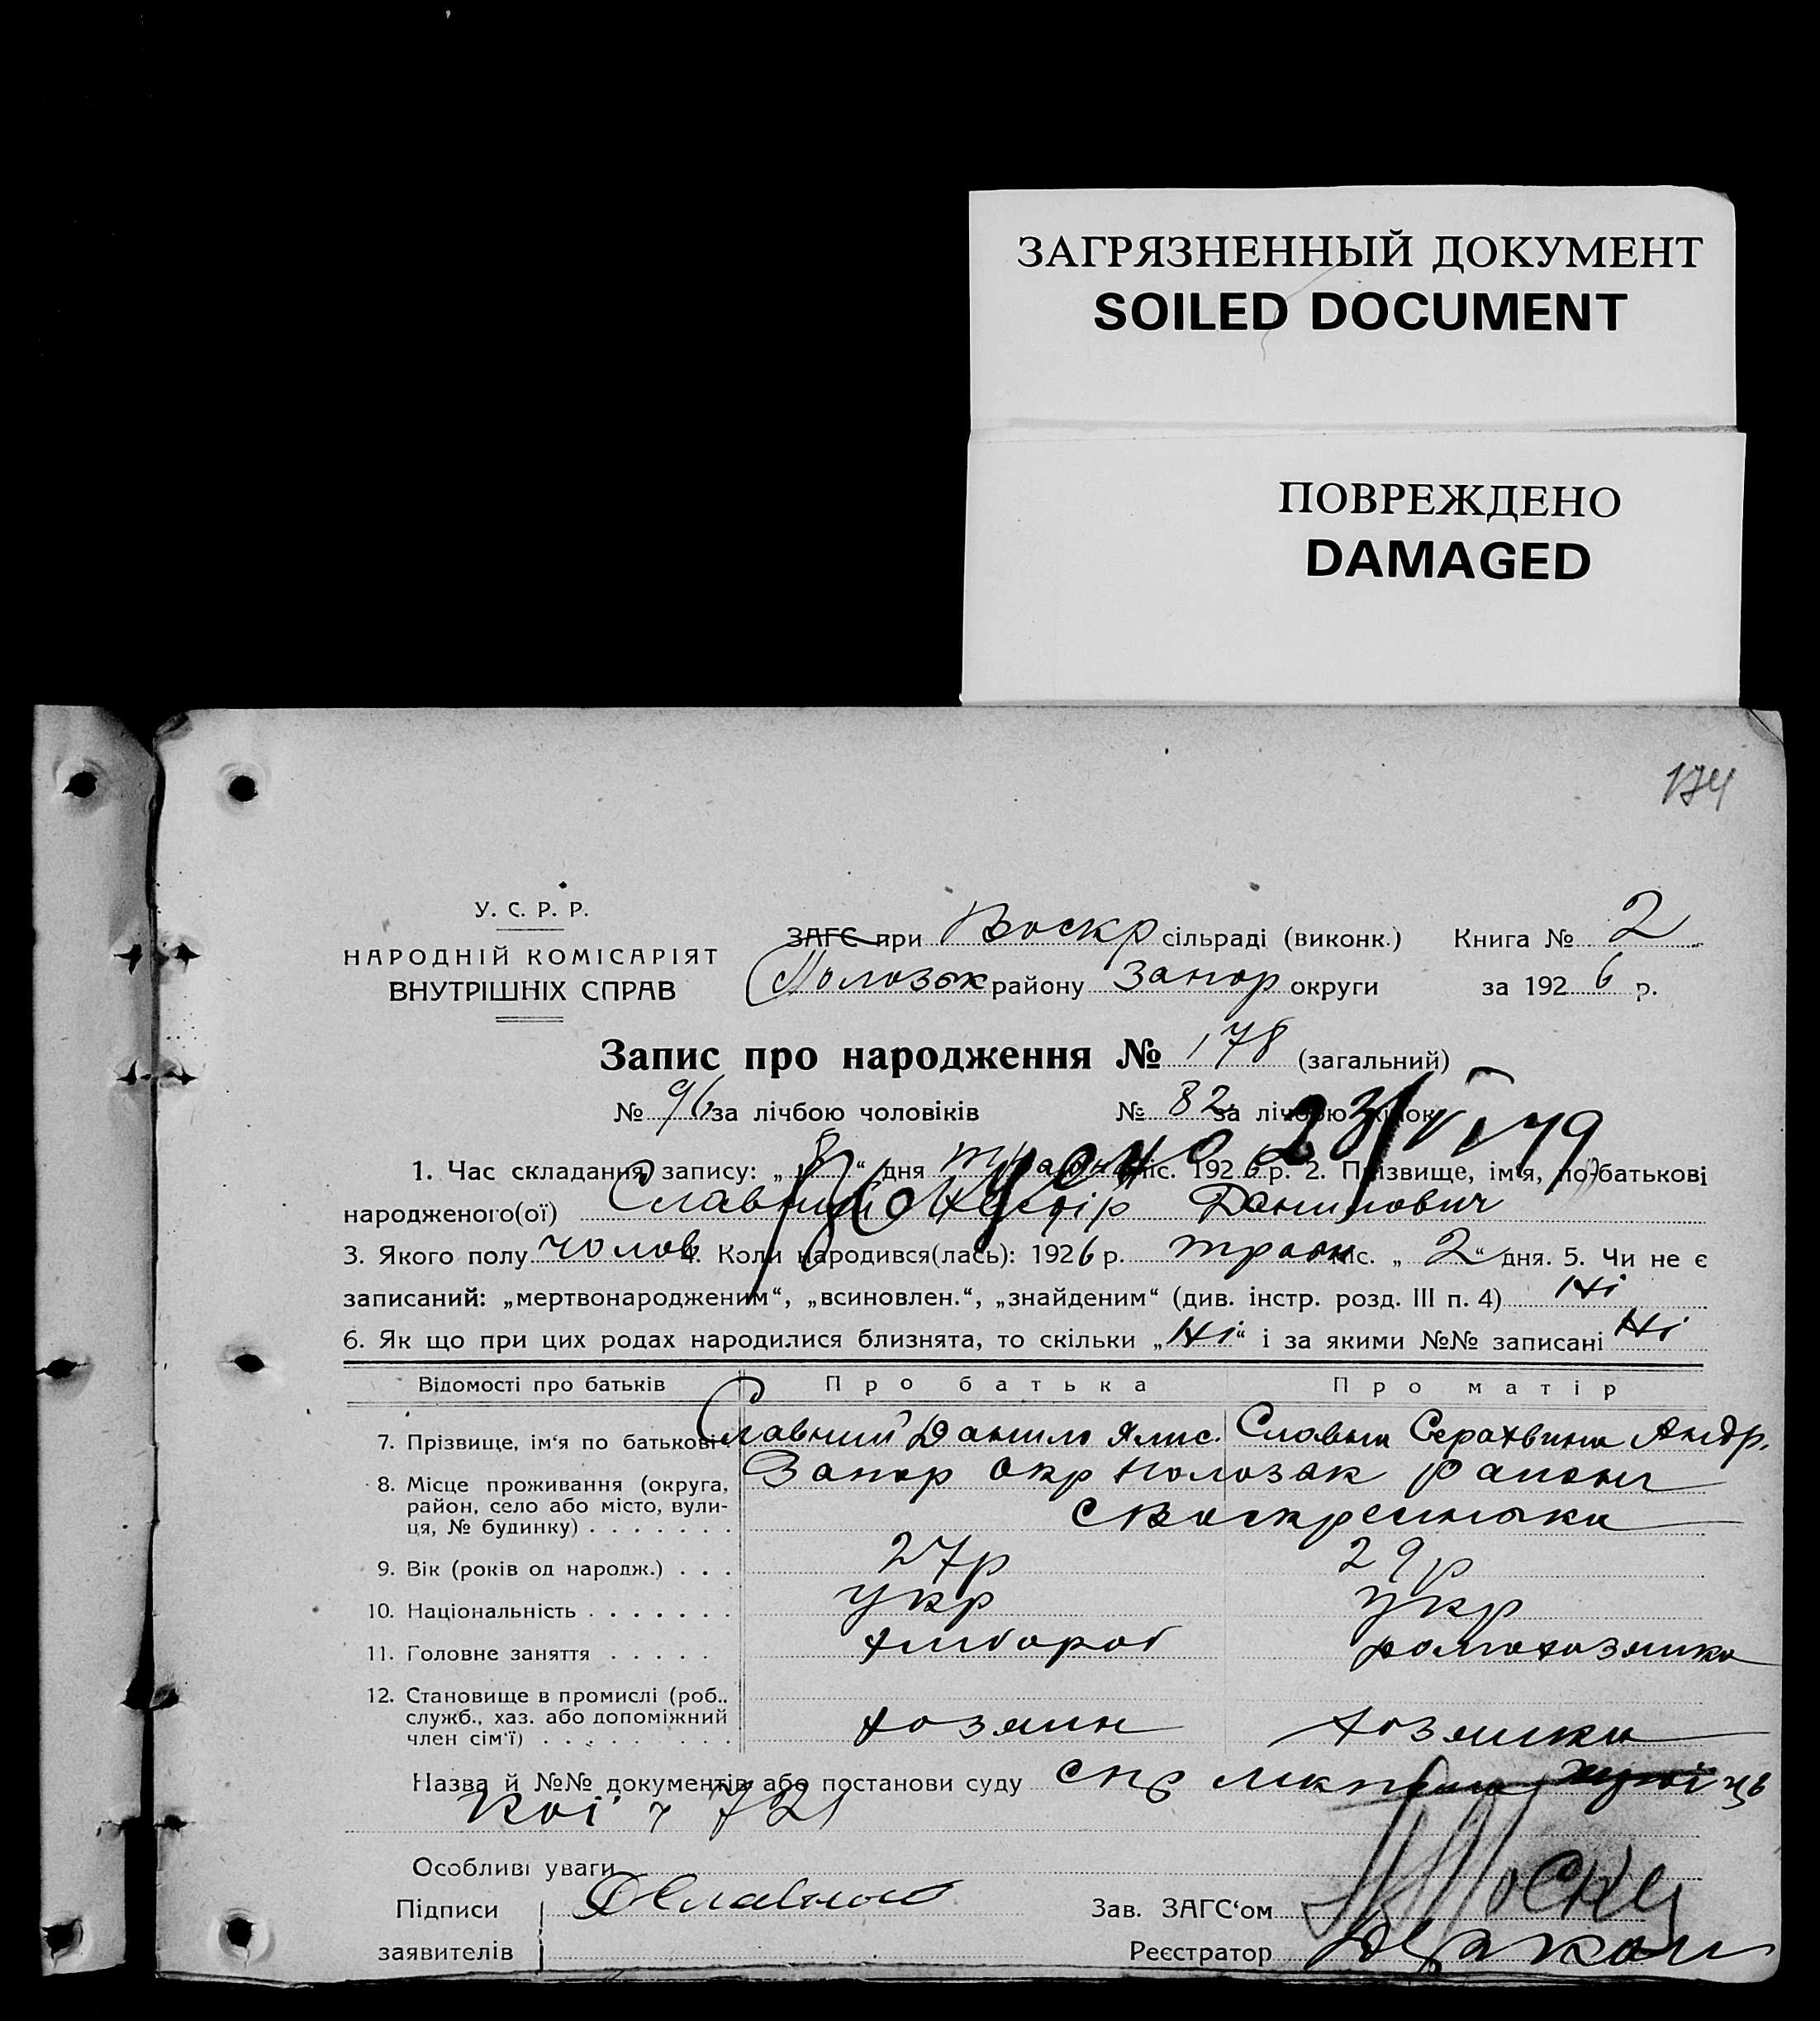 ЗАГРЯЗНЕННЫЙ ДОКУМЕНТ
SOILED DOCUMENT
ПОВРЕЖДЕНО
DAMAGED
174
У. С. Р. Р.
НАРОДНІЙ КОМІСАРІЯТ
ВНУТРІШНІХ СПРАВ
ЗАГС при Воскр сільраді (виконк.) Книга № 2
Полозьк району Запор округи за 1926 р.
Запис про народження № 178 (загальний)
№ 96 за лічбою чоловіків № 82 за лічбою жінок
23/VI 79
1. Час складання запису: „8“ дня травня міс. 1926 р. 2. Прізвище, ім'я, по-батькові
народженого(ої) Славний Нестір Данилович
3. Якого полу чолов 4. Коли народився(лась): 1926 р. травн міс. „2“ дня. 5. Чи не є
записаний: „мертвонародженим“, „всиновлен.“, „знайденим“ (див. інстр. розд. III п. 4) Ні
6. Як що при цих родах народилися близнята, то скільки „Ні“ і за якими №№ записані Ні
Відомості про батьків Про батька Про матір
7. Прізвище, ім'я по батькові Славний Данило Славна Серахвина Андр.
8. Місце проживання (округа, Запор окр Полозьк района
район, село або місто, вули-
ця, № будинку) . . . . . . . с Воскресенька
9. Вік (років од народж.) . . . 27р 29р
10. Національність . . . . . . . укр укр
11. Головне заняття . . . . . хлібороб домохозяика
12. Становище в промислі (роб.,
служб., хаз. або допоміжний
член сім'ї) . . . . . . . . . хозяин хозяика
Назва й №№ документів або постанови суду
721
Особливі уваги
Підписи
заявителів
Зав. ЗАГС'ом
Реєстратор